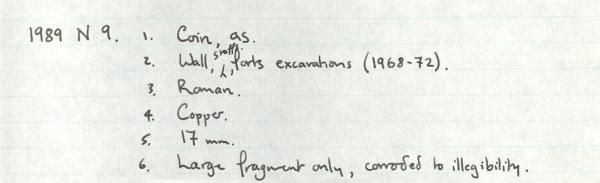 1989 N 9. 1. Coin, as.
2. Wall, Staffs, forts excavations (1968-72).
3. Roman.
4. Copper.
5. 17 mm.
6. Large fragment only, corroded to illegibility.